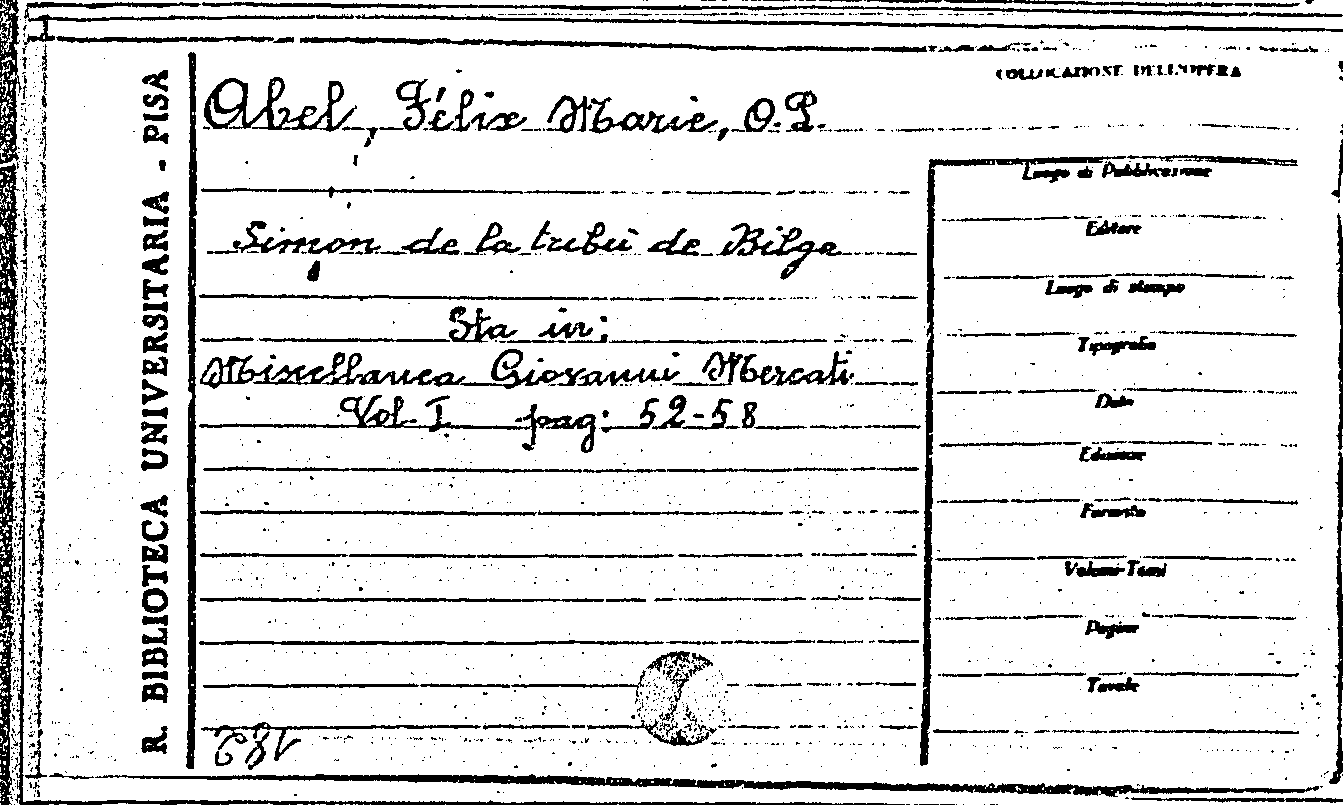 R. BIBLIOTECA UNIVERSITARIA - PISA
COLLOCAZIONE DELL'OPERA
Abel, Félix Marie, O.P.
Simon de la tribù de Bilga
Sta in:
Miscellanea Giovanni Mercati
Vol. I pag: 52-58
Luogo di Pubblicazione
Editore
Luogo di stampa
Tipografia
Data
Edizione
Formato
Volumi-Tomi
Pagine
Tavole